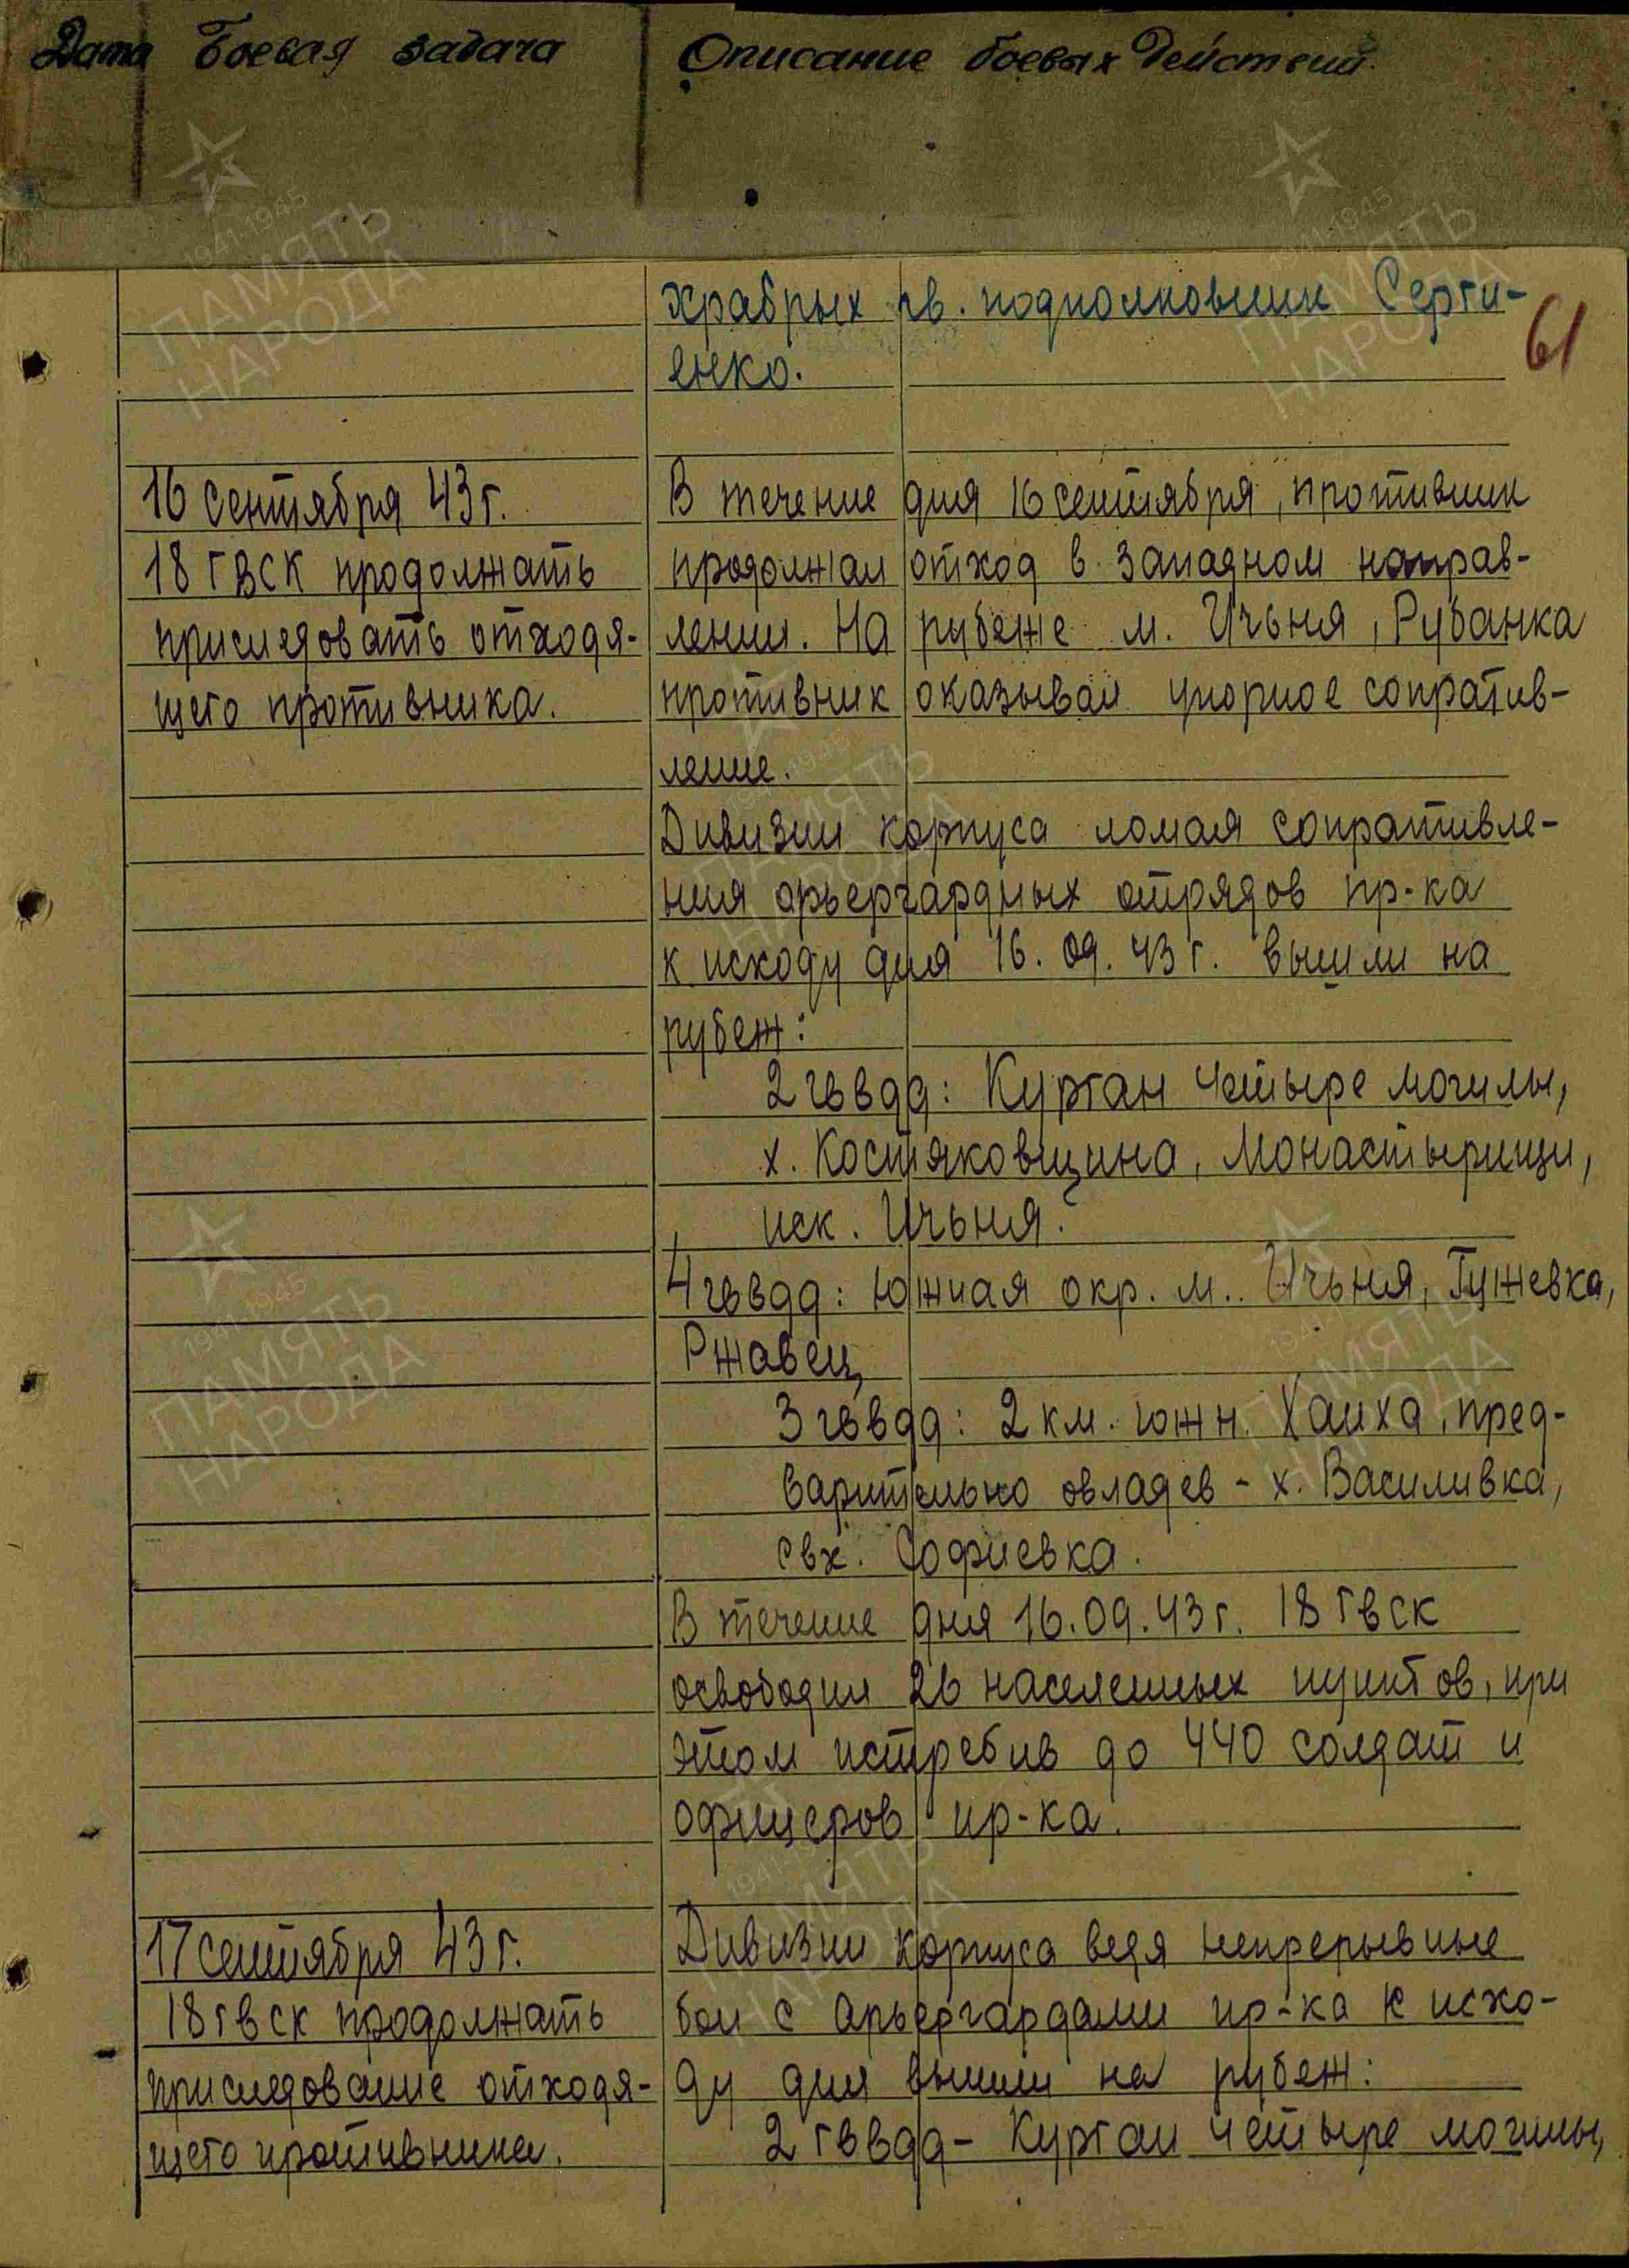 Дата Боевая задача Описание боевых действий.
61
храбрых гв. подполковник Серги-
енко.
16 сентября 43 г.
18 ГВСК продолжать
приследовать отходя-
щего противника.
В течение дня 16 сентября, противник
продолжал отход в западном направ-
лении. На рубеже м. Ичьня, Рубанка
противник оказывал упорное сопратив-
ление.
Дивизии корпуса ломая сопративле-
ния арьергардных отрядов пр-ка
к исходу дня 16.09.43 г. вышли на
рубеж:
2 гввдд: Курган четыре могилы,
х. Костяковщина, Монастырищи,
иск. Ичьня.
4 гввдд: южная окр. м.. Ичьня, Гужевка,
Ржавец,
3 гввдд: 2 км. южн. Хаиха, пред-
варительно овладев - х. Василивка,
свх. Софиевка.
В течение дня 16.09.43 г. 18 гвск
освободил 26 населенных пунктов, при
этом истребив до 440 солдат и
офицеров пр-ка.
17 сентября 43 г.
18 гвск продолжать
приследование отходя-
щего противника.
Дивизии корпуса ведя непрерывные
бои с арьергардами пр-ка к исхо-
ду дня вышли на рубеж:
2 гввдд - Курган четыре могилы,
ПАМЯТЬ
НАРОДА
1941-1945